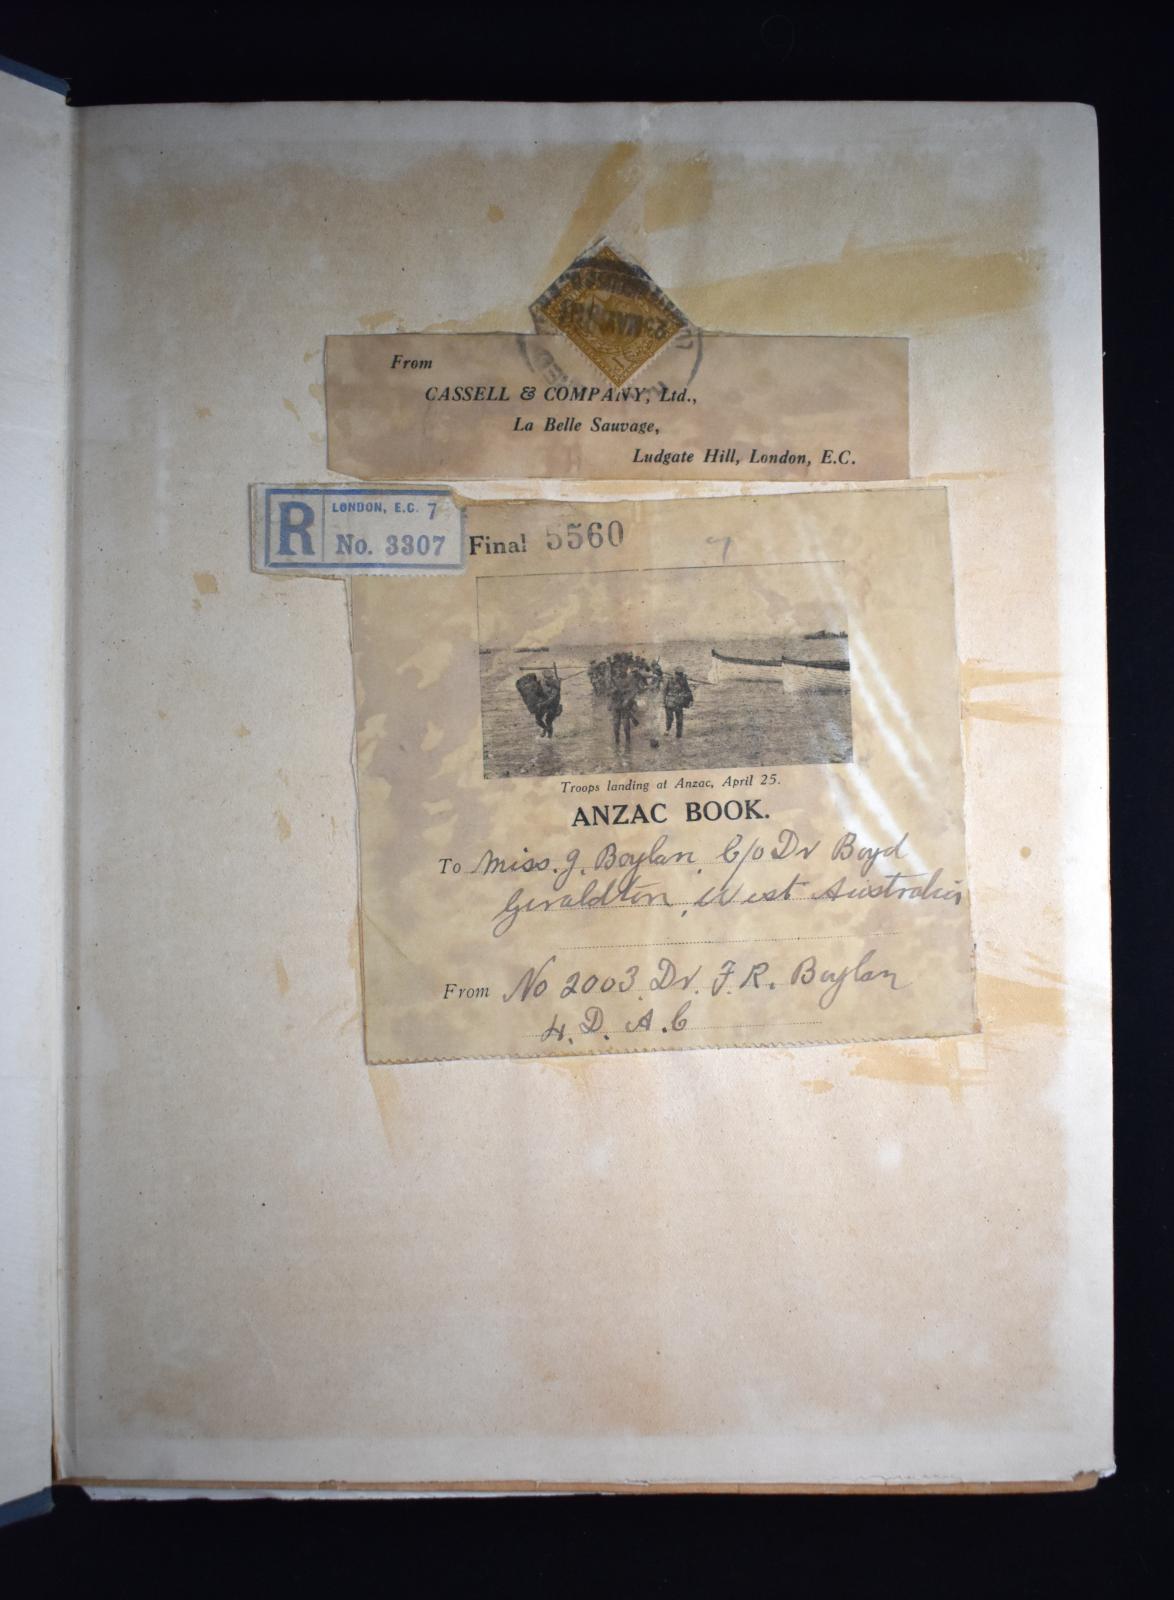 From
CASSELL & COMPANY, Ltd.,
La Belle Sauvage,
Ludgate Hill, London, E.C.
R
LONDON, E.C. 7
No. 3307
Final 5560
Troops landing at Anzac, April 25.
ANZAC BOOK.
To Miss. J. Boylan, C/o Dr Boyd
Geraldton, West Australia
From No 2003. Dr. F. R. Boylan
4. D. A. C